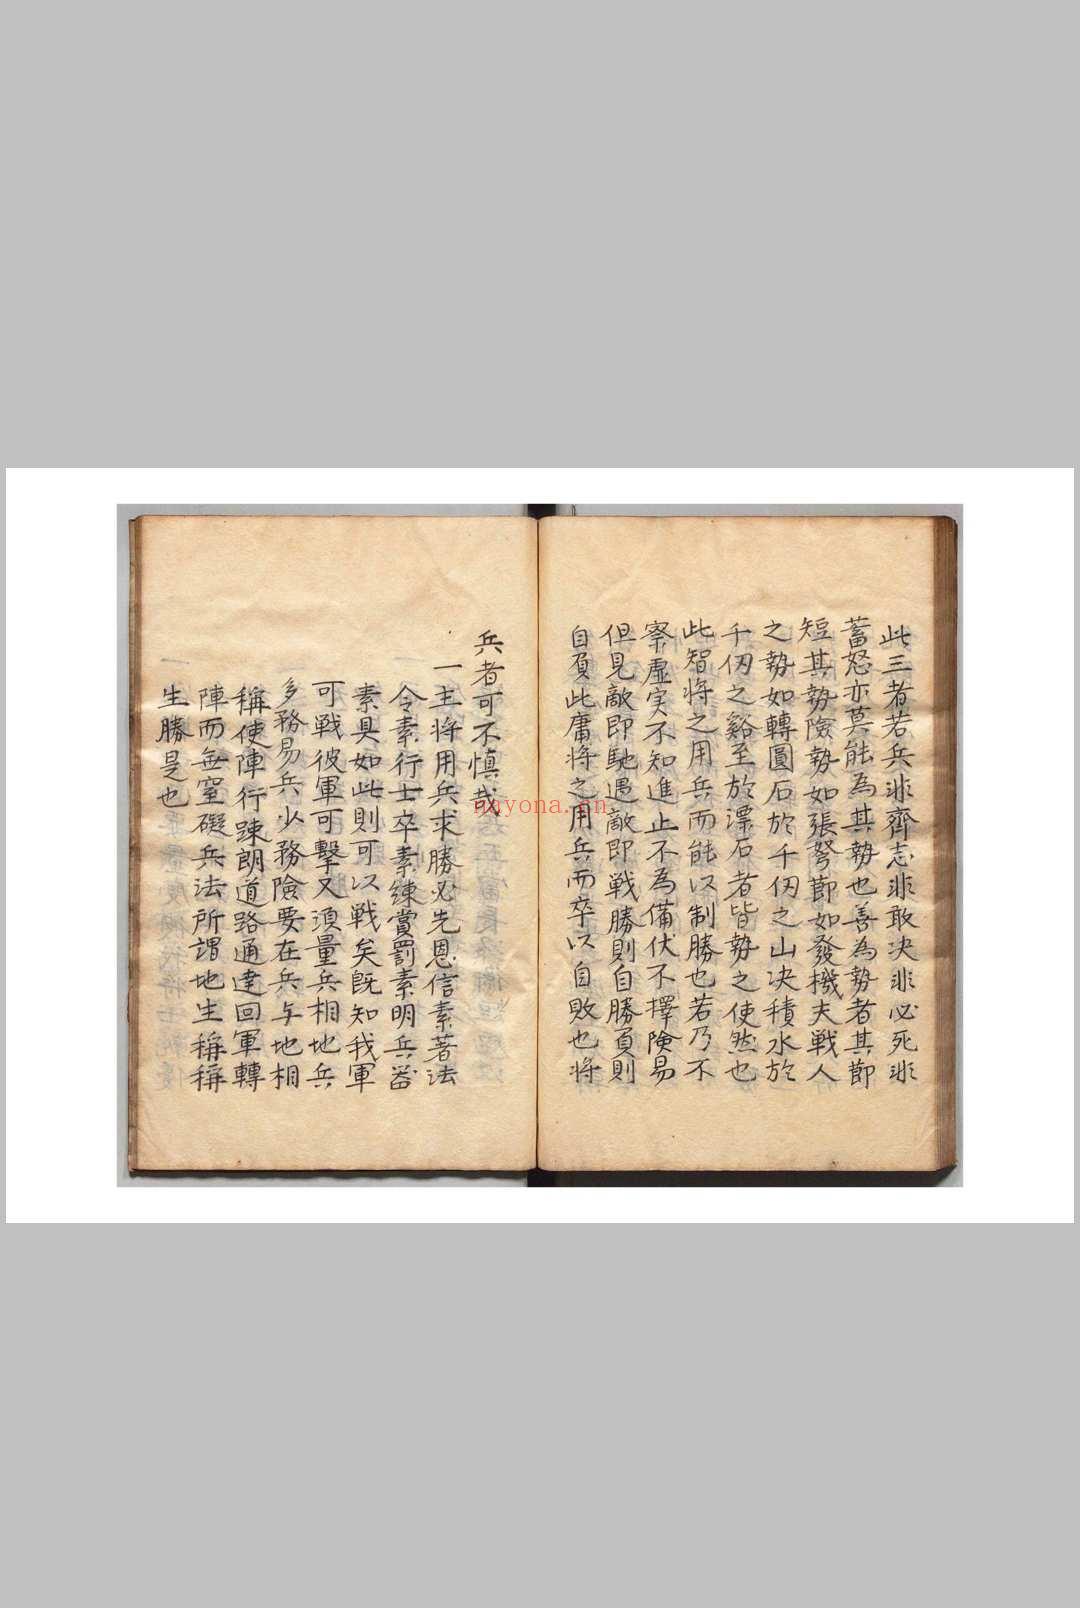 此三者若兵非齊志非敢决非必死非
蓄怒亦莫能為其勢也善為勢者其節
短其勢險勢如張弩節如發機夫戦人
之勢如轉圓石於千仞之山决積水於
千仞之谿至於漂石者皆勢之使然也
此智将之用兵而能以制勝也若乃不
察虚实不知進止不為備伏不擇險易
但見敵即馳遇敵即戦勝則自勝負則
自負此庸将之用兵而卒以自敗也将
兵者可不慎哉
一主将用兵求勝必先恩信素著法
令素行士卒素練賞罰素明兵器
素具如此則可以戦矣既知我軍
可戦彼軍可擊又須量兵相地兵
多務易兵少務險要在兵与地相
稱使陣行踈朗道路通達回軍轉
陣而無窒礙兵法所謂地生稱稱
生勝是也
nayona.cn